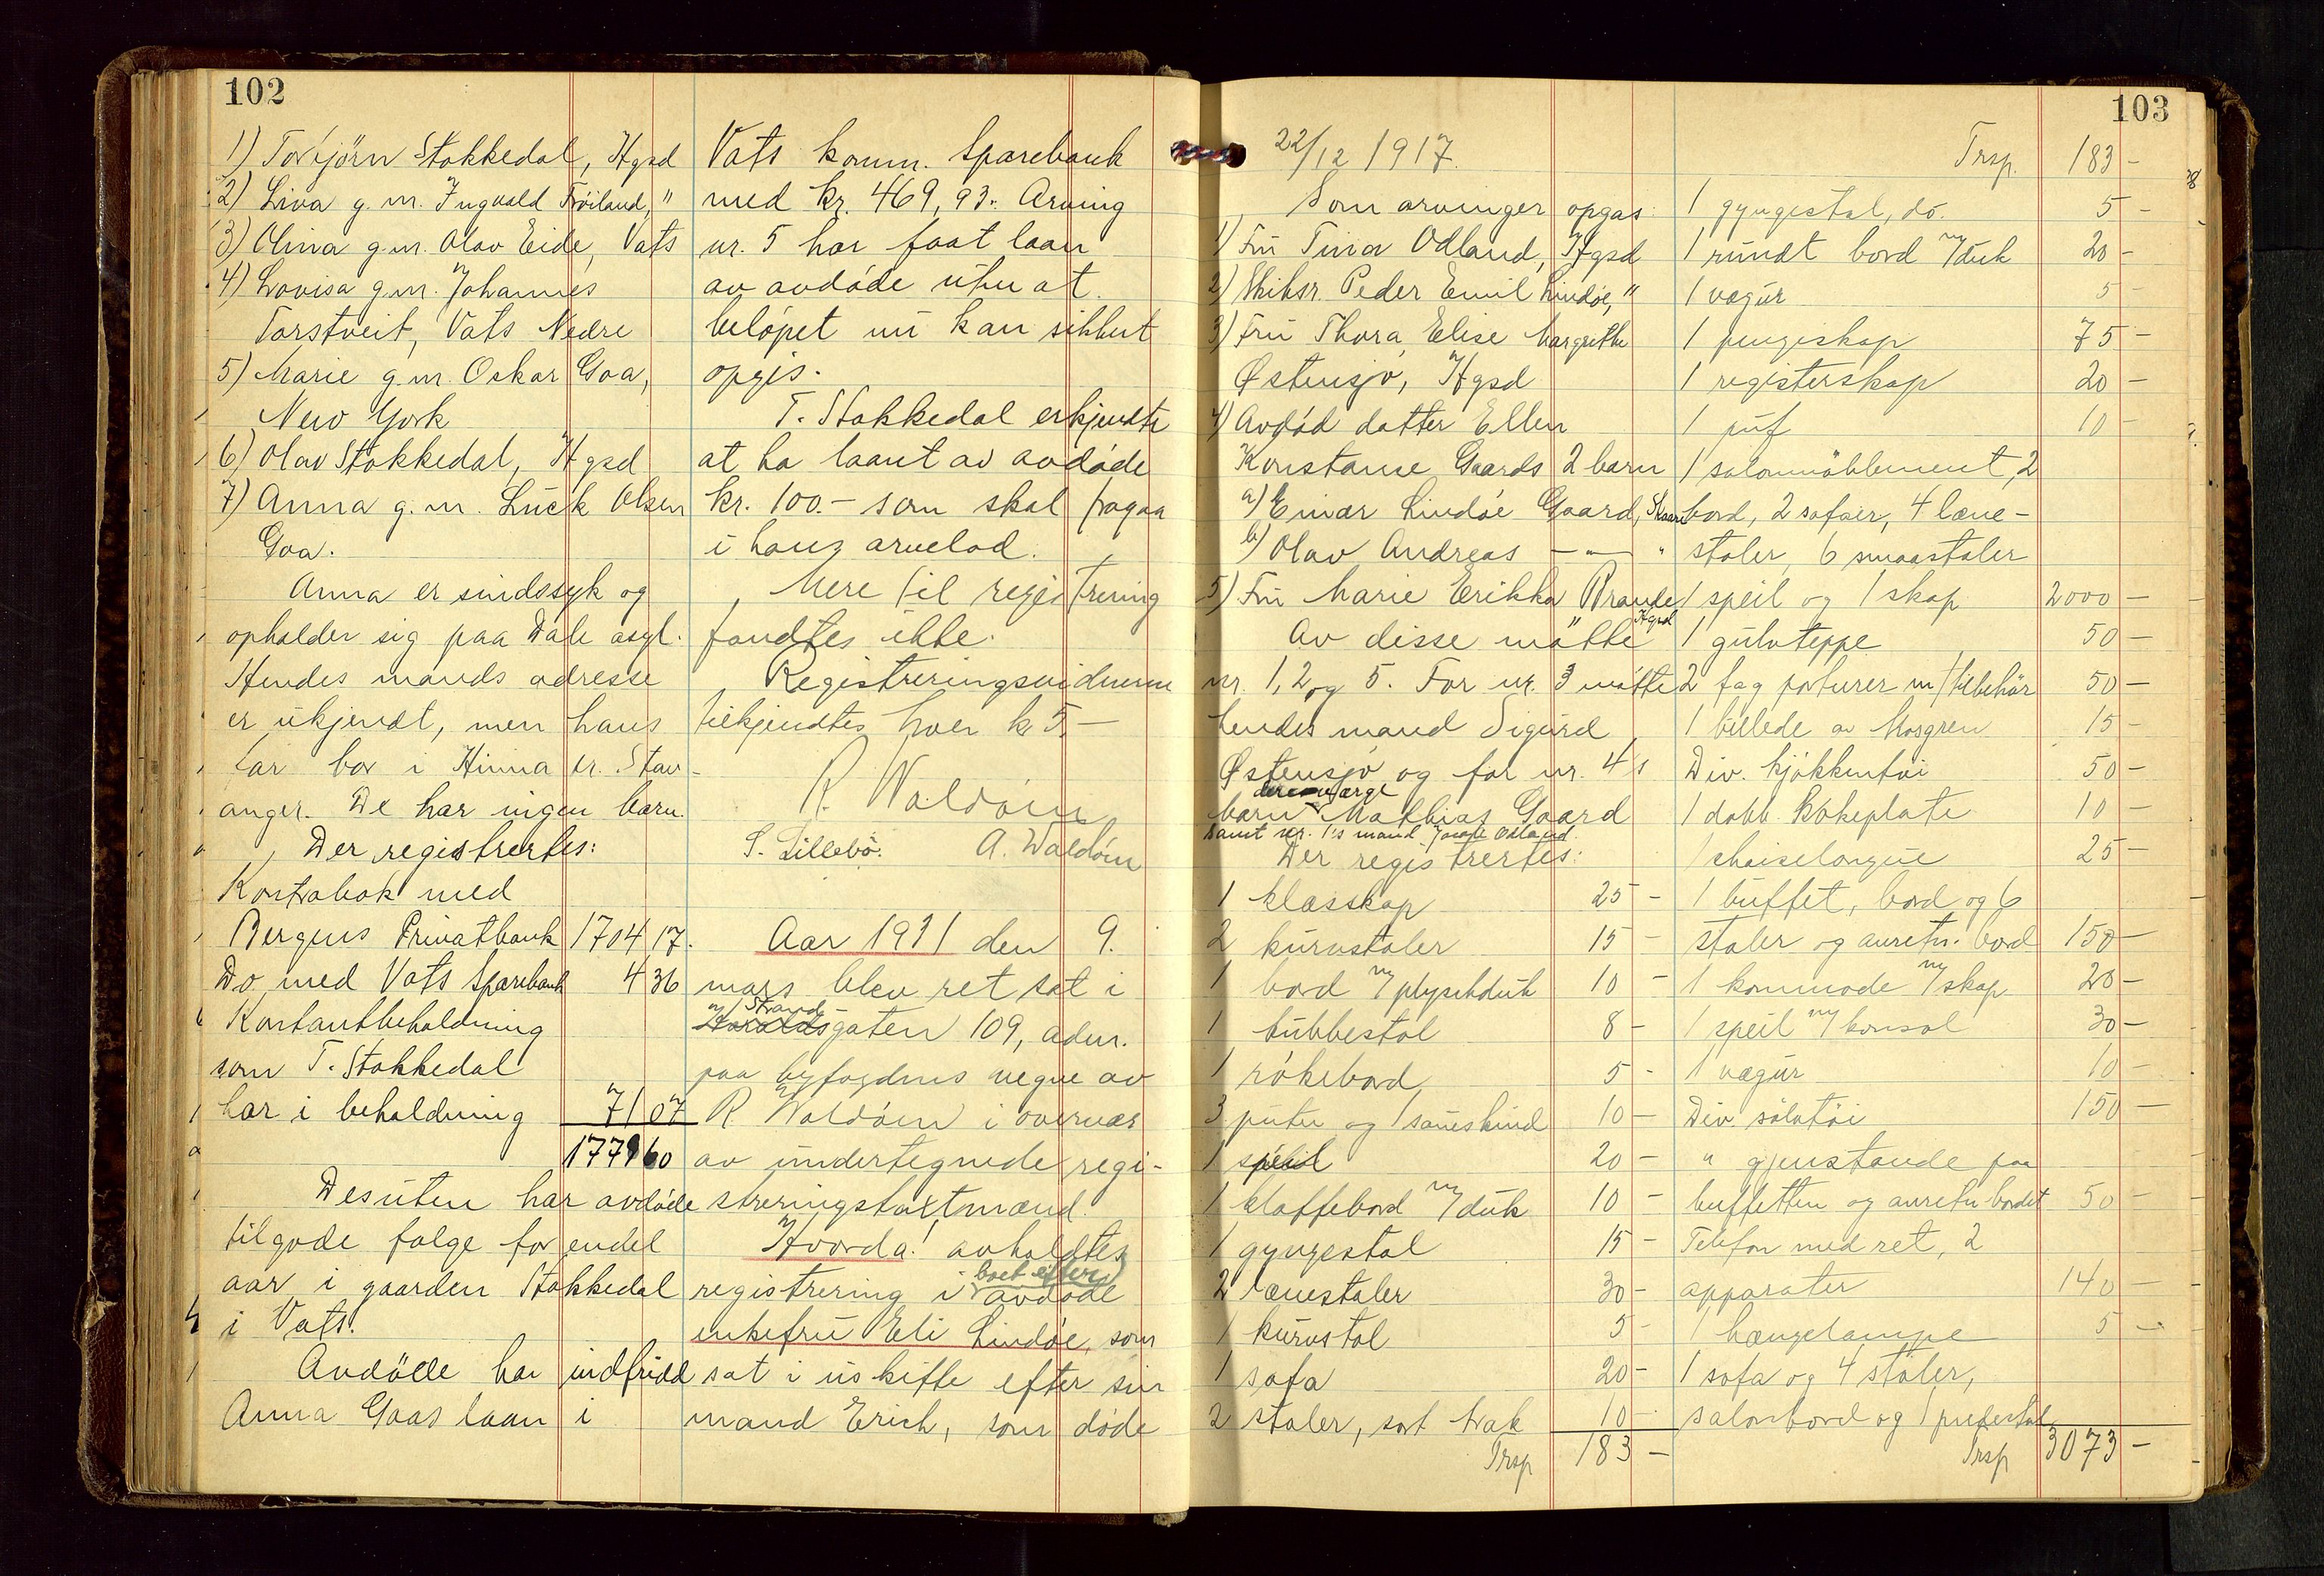 102
1) Torbjörn Stakkedal, Hgsd
2) Liva g. m. Ingvald Fröiland, "
3) Olina g.m. Olav Eide, Vats
4) Lovisa g.m. Johannes
Torstveit, Vats Nedre
5) Marie g.m. Oskar Goa,
New York
6) Olav Stakkedal, Hgsd
7) Anna g. m. Luck Olsen
Goa.
Anna er sindssyk og
opholder sig paa Dale asyl.
Hendes mands adresse
er ukjendt, men hans
far bor i Hinna pr. Stav-
anger. De har ingen barn.
Der registrertes:
Kontrabok med
Bergens Privatbank 1704 17.
Do med Vats Sparebank 4 36
Kontantbeholdning
som T. Stakkedal
har i beholdning 71 07
1779 60
Desuten har avdøde
tilgode følge for endel
aar i gaarden Stakkedal
i Vats.
Avdøde har indfridd
Anna Goas laan i
Vats komm. Sparebank
med kr. 469,93. Arving
nr. 5 har faat laan
av avdøde uten at
beløpet nu kan sikkert
opgis.
T. Stakkedal erkjendte
at ha laant av avdøde
kr. 100.- som skal fragaa
i hans arvelod.
Mere til registrering
fandtes ikke.
Registreringsvidnerne
tilkjendtes hver kr 5.-
R. Waldörn
S. Lillebö. A. Waldörn
Aar 1931 den 9.
mars blev ret sat i
Strand-
Haraldsgaten 109, adm.
paa byfogdens vegne av
R. Waldörn i overvær
av undertegnede regi-
streringstaxtmænd.
Hvorda! avholdtes
boet efter
registrering i avdøde
enkefru Eli Lindøe, som
sat i uskifte efter sin
mand Erich, som døde
103
22/12 1917.
Som arvinger opgas:
1) Fru Tina Odland, Hgsd
2) Skibsr. Peder Emil Lindøe, "
3) Fru Thora Elise Margrethe
Østensjø, Hgsd
4) Avdød datter Ellen
Konstanse Gaards 2 barn
a) Einar Lindøe Gaard, Skaare
b) Olav Andreas -"- "
5) Fru Marie Erikka Brande
Hgsd
Av disse møtte
nr. 1, 2 og 5. For nr. 3 møtte
hendes mand Sigurd
Østensjø og for nr. 4's
deres værge
barn Mathias Gaard
samt nr. 1's mand Odland.
Der registrertes:
1 klæsskap 25 -
2 kurvstoler 15 -
1 bord m/ plyschduk 10 -
1 kubbestol 8 -
1 rökebord 5 -
3 puter og 1 saueskind 10 -
1 speil 20 -
1 klaffebord m/ duk 10 -
1 gyngestol 15 -
2 lænestoler 30 -
1 kurvstol 5 -
1 sofa 20 -
2 stoler, sort træk 10 -
Trsp 183 -
Trsp. 183 -
1 gyngestol, do. 5 -
1 rundt bord m/duk 20 -
1 vægur 5 -
1 pengeskap 75 -
1 registerskap 20 -
1 puf 10 -
1 salonmöblement, 2
bord, 2 sofaer, 4 læne-
stoler, 6 smaastoler
1 speil og 1 skap 2000 -
1 gulvteppe 50 -
2 fag portierer m/tilbehör 50 -
1 billede av Mosgren 15 -
Div. kjökkentöi 50 -
1 dobb. kokeplate 10 -
1 chaiselongue 25 -
1 buffet, bord og 6
stoler og anretn. bord 150 -
1 kommode m/ skap 20 -
1 speil m/ konsol 30 -
1 vægur 10 -
Div. sölvtöi 150 -
" gjenstande paa
buffetten og anretn. bordet 50 -
Telefon med ret, 2
apparater 140 -
1 hængelampe 5 -
1 sofa og 4 stoler,
salonbord og 1 piedestal
Trsp 3073 -